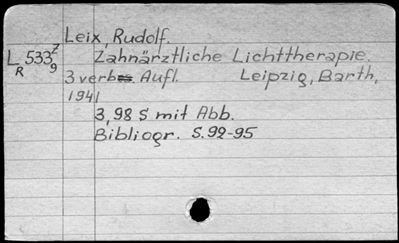 Leix, Rudolf.
L 533 z
R 9
Zahnärztliche Lichttherapie
3 verb. Aufl. Leipzig, Barth,
1941
3, 98 S mit Abb.
Bibliogr. S. 92-95